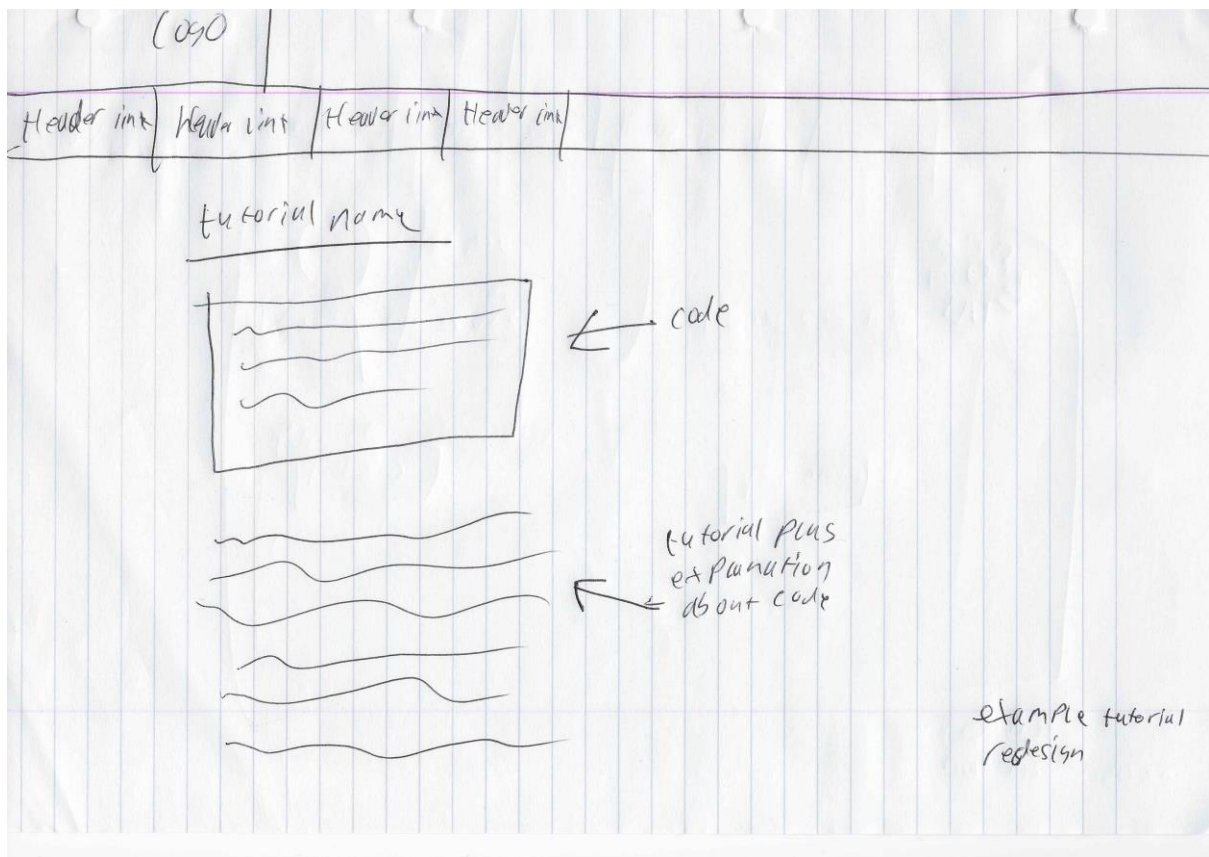 Logo
Header link Header link Header link Header link
tutorial name
code
tutorial plus
explanation
about code
example tutorial
redesign